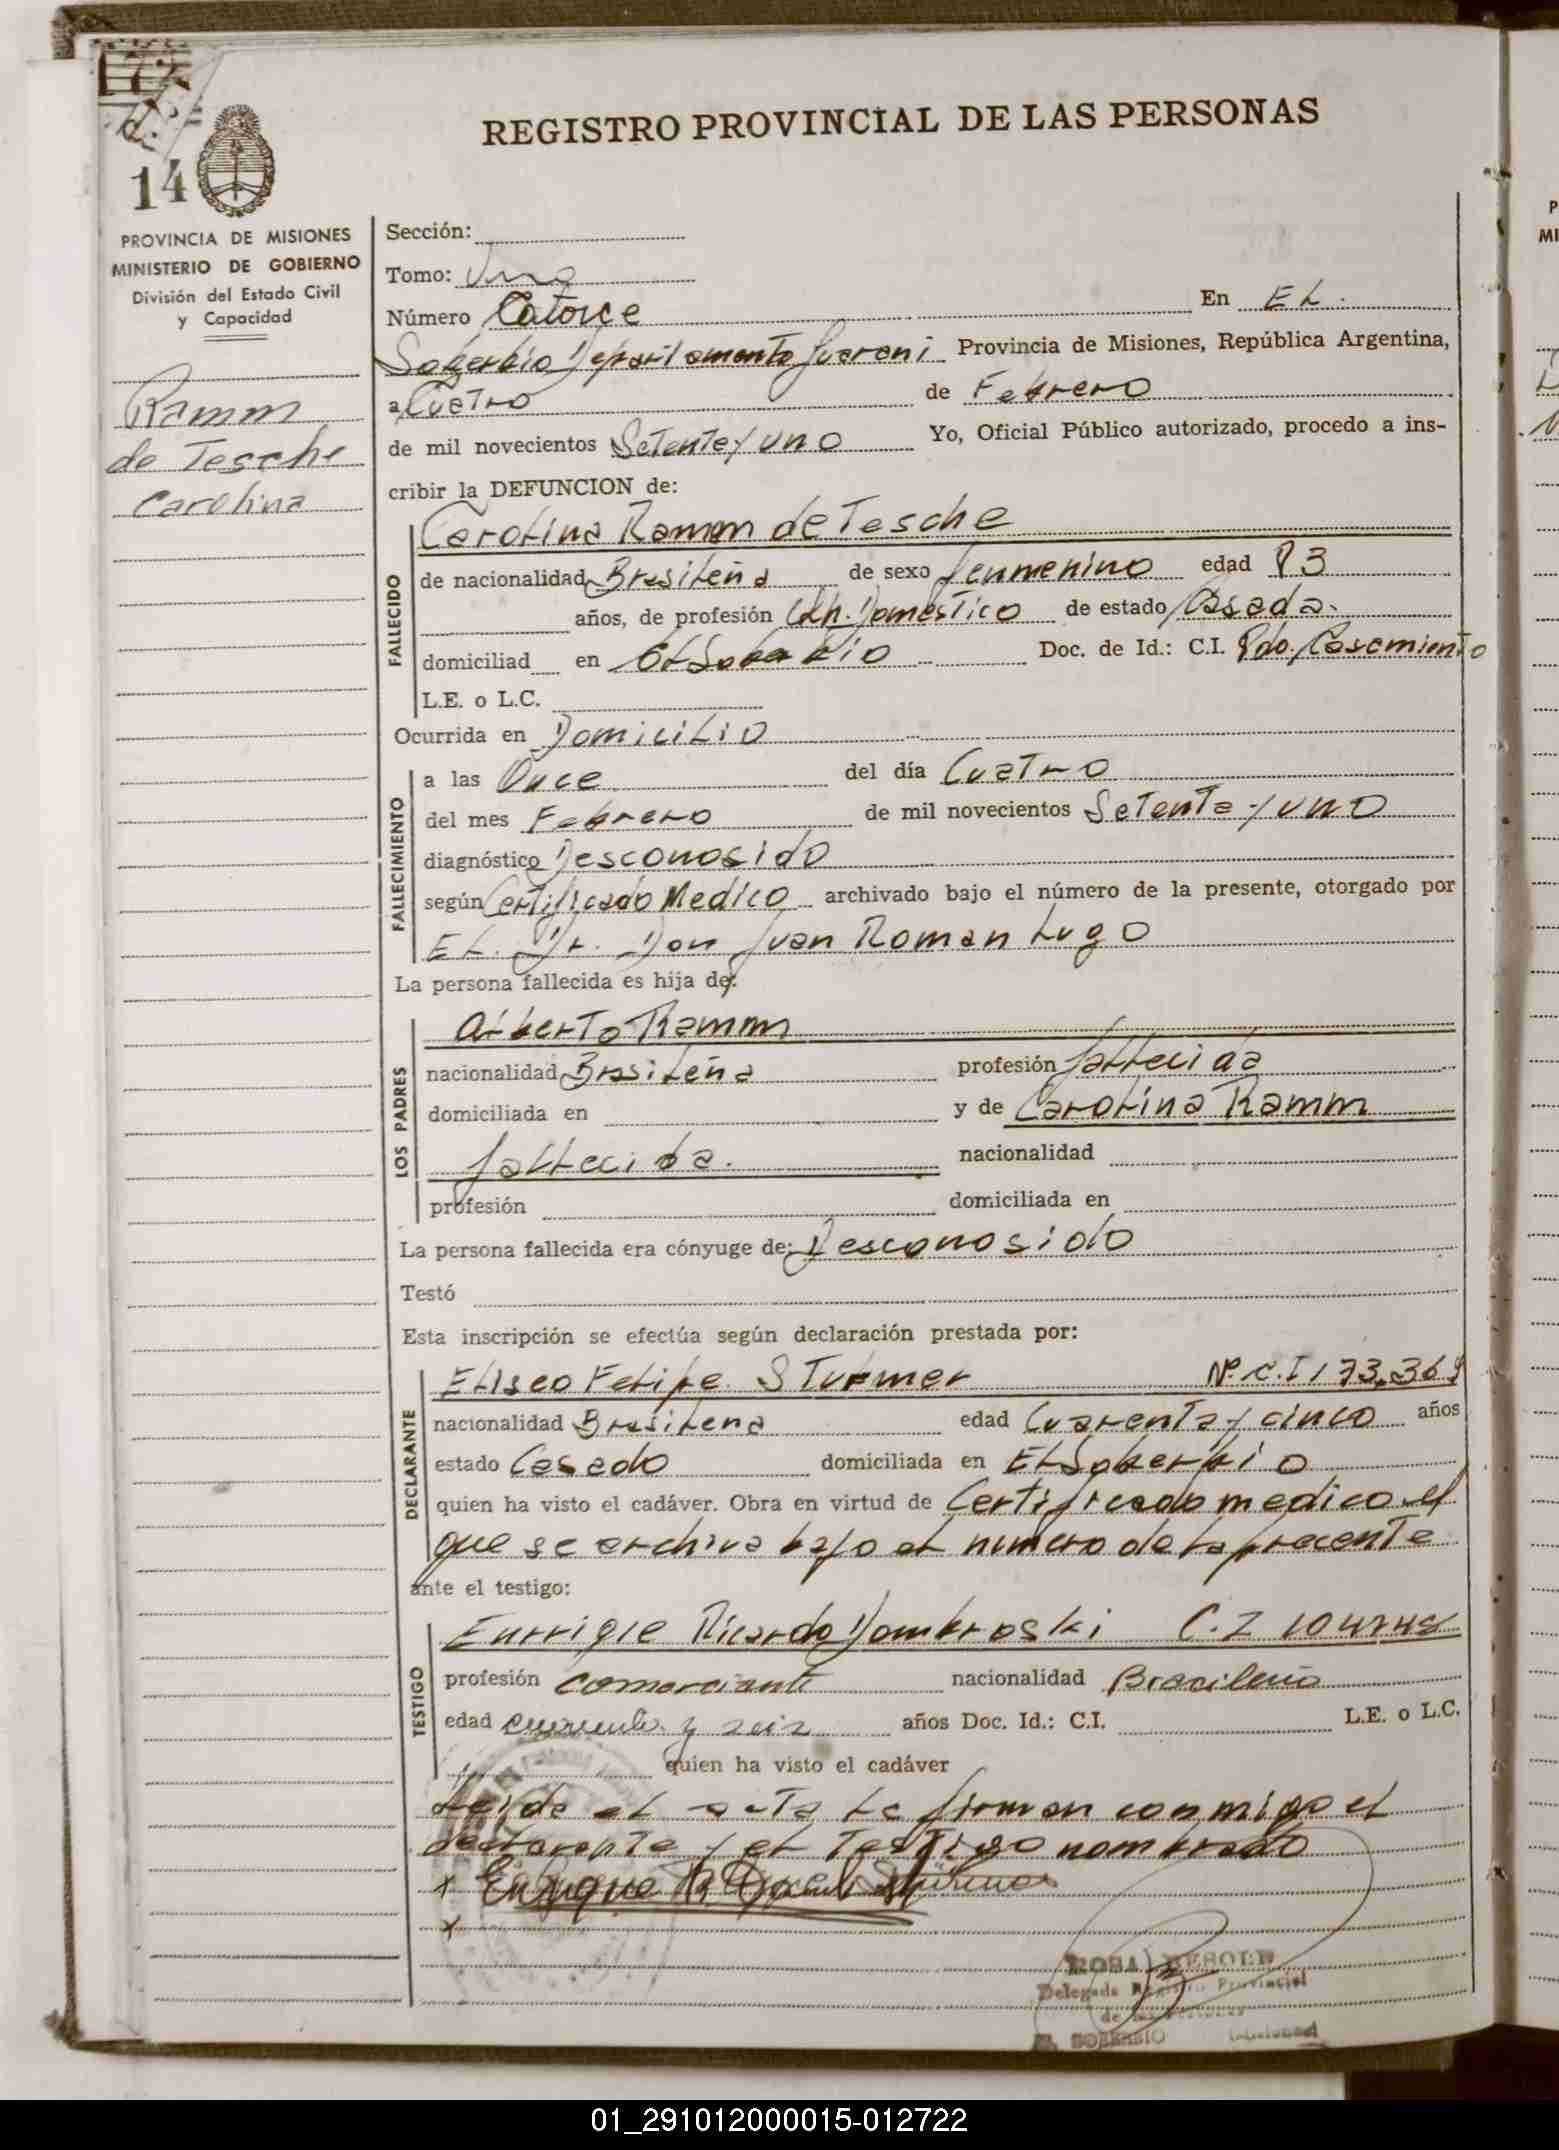 14
REGISTRO PROVINCIAL DE LAS PERSONAS
PROVINCIA DE MISIONES
MINISTERIO DE GOBIERNO
División del Estado Civil
y Capacidad
Ramm
de Tesche
Carolina
Sección:
Tomo: Uno
Número Catorce En EL.
Soberbio Departamento Guarani Provincia de Misiones, República Argentina,
a Cuatro de Febrero
de mil novecientos Setenta y uno Yo, Oficial Público autorizado, procedo a ins-
cribir la DEFUNCION de:
Carolina Ramm de Tesche
FALLECIDO
de nacionalidad Brasileña de sexo fenmenino edad 83
años, de profesión Domestico de estado Casada.
domiciliad en El Soberbio Doc. de Id.: C.I. Casamiento
L.E. o L.C.
Ocurrida en Domicilio
FALLECIMIENTO
a las Once del día Cuatro
del mes Febrero de mil novecientos Setenta y uno
diagnóstico Desconosido
según Certificado Medico archivado bajo el número de la presente, otorgado por
EL. Dr. Don Juan Roman Lugo
La persona fallecida es hija de:
LOS PADRES
Alberto Ramm
nacionalidad Brasileña profesión fallecida
domiciliada en y de Carolina Ramm
fallecida. nacionalidad
profesión domiciliada en
La persona fallecida era cónyuge de: Desconosido
Testó
Esta inscripción se efectúa según declaración prestada por:
DECLARANTE
Eliseo Felipe Sturmer Nº. C.I 173.369
nacionalidad Brasilena edad Cuarenta y cinco años
estado Casado domiciliada en El Soberbio
quien ha visto el cadáver. Obra en virtud de Certificado medico el
que se archiva bajo el numero de la precente
ante el testigo:
TESTIGO
Enrrique Ricardo Dombroski C.I
profesión comerciante nacionalidad Brasileño
edad cuarenta y seis años Doc. Id.: C.I. L.E. o L.C.
quien ha visto el cadáver
Leida el acta la firman conmigo el
declarante y el Testigo nombrado
x Enrique R
x
ROSA BESOLD
Delegada Registro Provincial
de las Personas
EL SOBERBIO (Misiones)
01_291012000015-012722